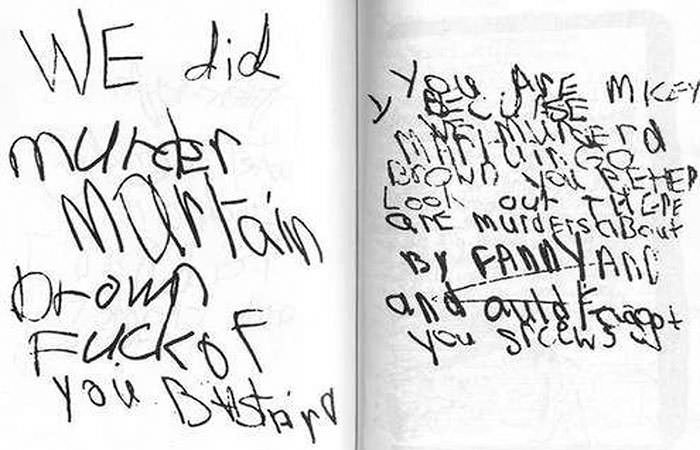 WE did
murder
martain
brown
Fuckof
you BAstArd
You ArE mICEY
y BECUrSE
WE murdErd
MArtAin GO
BrOWn you BEtEr
Look out THErE
arE murdErs about
By FANNYAND
and auld Faggot
you srcews